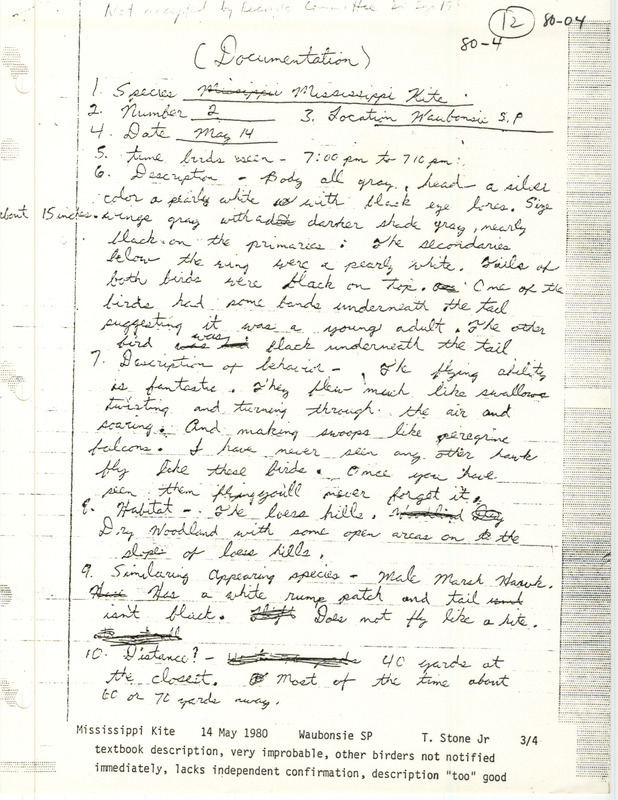 Not accepted by Records Committee
12 80-04
80-4
(Documentation)
1. Species Mississippi Kite.
2. Number 2 3. Location Waubonsie S.P
4. Date May 14
5. time birds seen - 7:00 pm to 710 pm.
6. Description - Body all gray, head - a silver
color a pearly white with black eye lores. Size
about 15 inches. wings gray with a darker shade gray, nearly
black on the primaries. The secondaries
below the wing were a pearly white. Tails of
both birds were black on top. One of the
birds had some bands underneath the tail
suggesting it was a young adult. The other
bird was black underneath the tail
7. Description of behavior - The flying ability
is fantastic. They flew much like swallows
twisting and turning through the air and
soaring. And making swoops like peregrine
falcons. I have never seen any other hawk
fly like these birds. Once you have
seen them flying you'll never forget it.
8. Habitat - The loess hills.
Dry Woodland with some open areas on the
slope of loess hills.
9. Similaring Appearing species - Male Marsh Hawk.
Has a white rump patch and tail
isn't black. Does not fly like a kite.
10. Distance? - 40 yards at
the closest. Most of the time about
60 or 70 yards away.
Mississippi Kite 14 May 1980 Waubonsie SP T. Stone Jr 3/4
textbook description, very improbable, other birders not notified
immediately, lacks independent confirmation, description "too" good